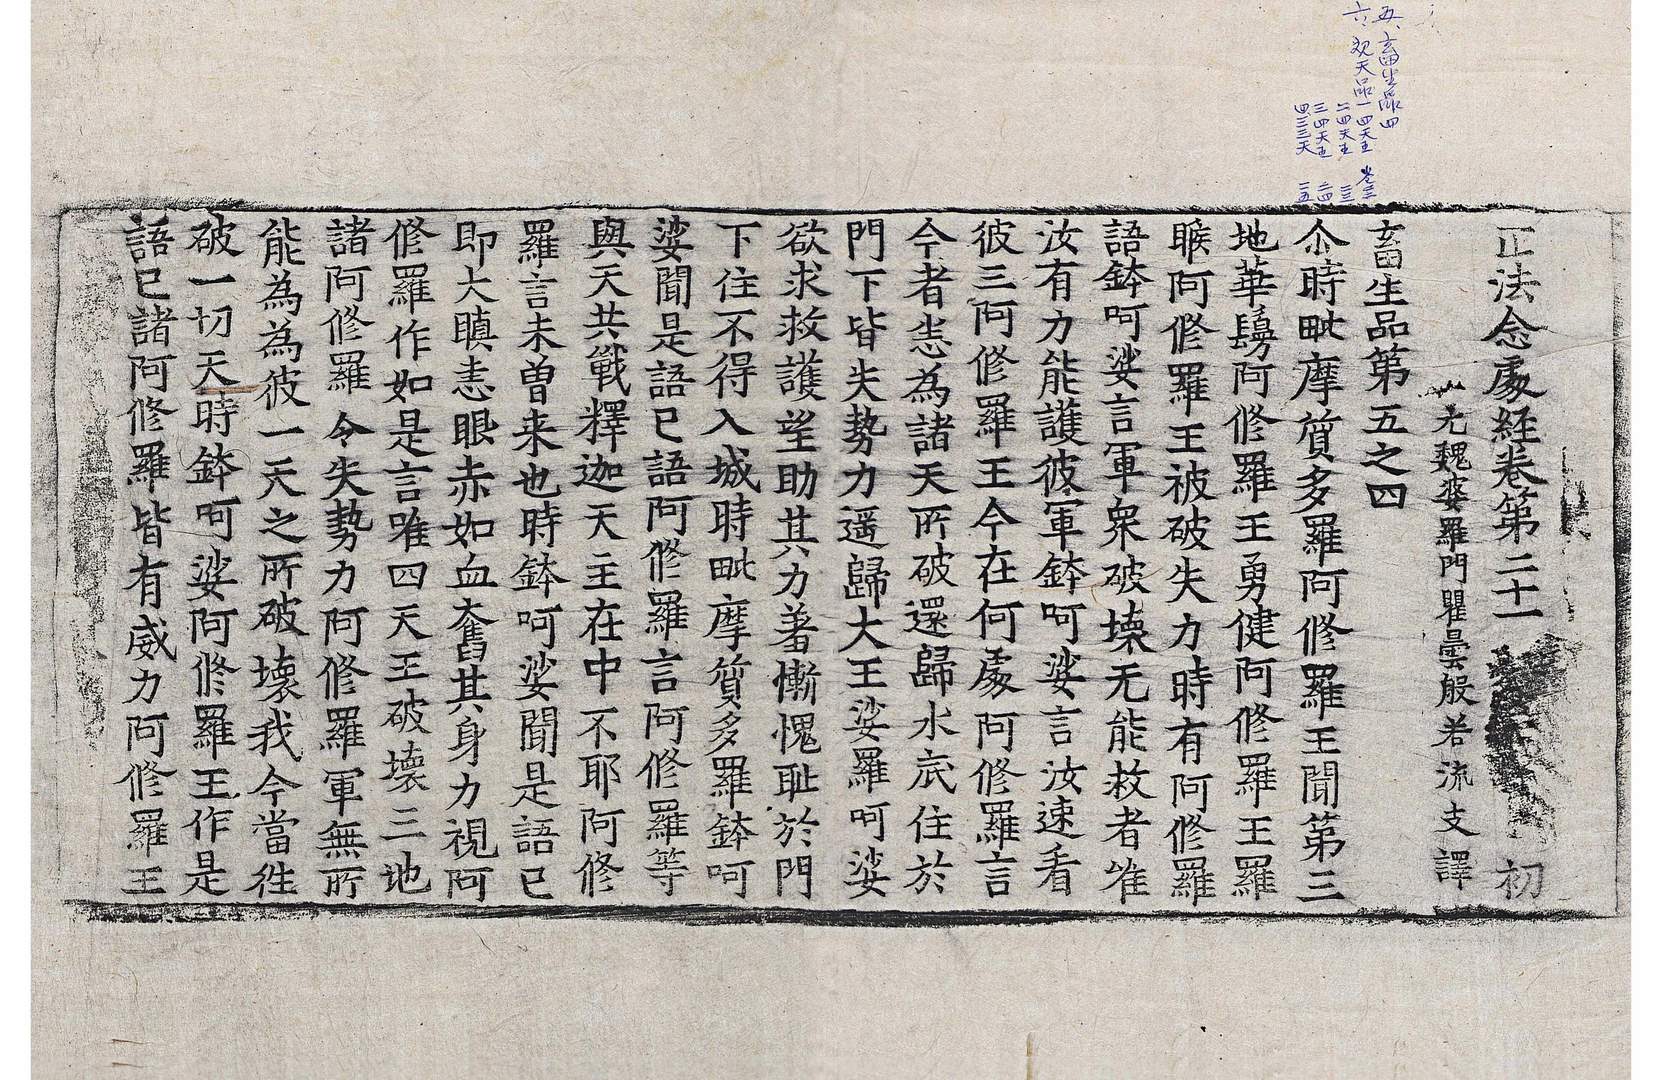 五、畜生品四
六、观天品一四天王 卷三
二四天王 二三
三四天王 二四
四三三天 二五
正法念處経卷第二十一 初
元魏婆羅門瞿曇般若流支譯
畜生品第五之四
尒時毗摩質多羅阿修羅王聞第三
地華鬘阿修羅王勇健阿修羅王羅
睺阿修羅王被破失力時有阿修羅
語鉢呵娑言軍衆破壞无能救者唯
汝有力能護彼軍鉢呵娑言汝速看
彼三阿修羅王今在何處阿修羅言
今者恙為諸天所破還歸水底住於
門下皆失勢力遥歸大王娑羅呵娑
欲求救護望助其力著慚愧恥於門
下住不得入城時毗摩質多羅鉢呵
娑聞是語已語阿修羅言阿修羅等
與天共戰釋迦天主在中不耶阿修
羅言未曽来也時鉢呵娑聞是語已
即大瞋恚眼赤如血奮其身力視阿
修羅作如是言唯四天王破壞三地
諸阿修羅令失勢力阿修羅軍無所
能為為彼一天之所破壞我今當往
破一切天時鉢呵娑阿修羅王作是
語已諸阿修羅皆有威力阿修羅王